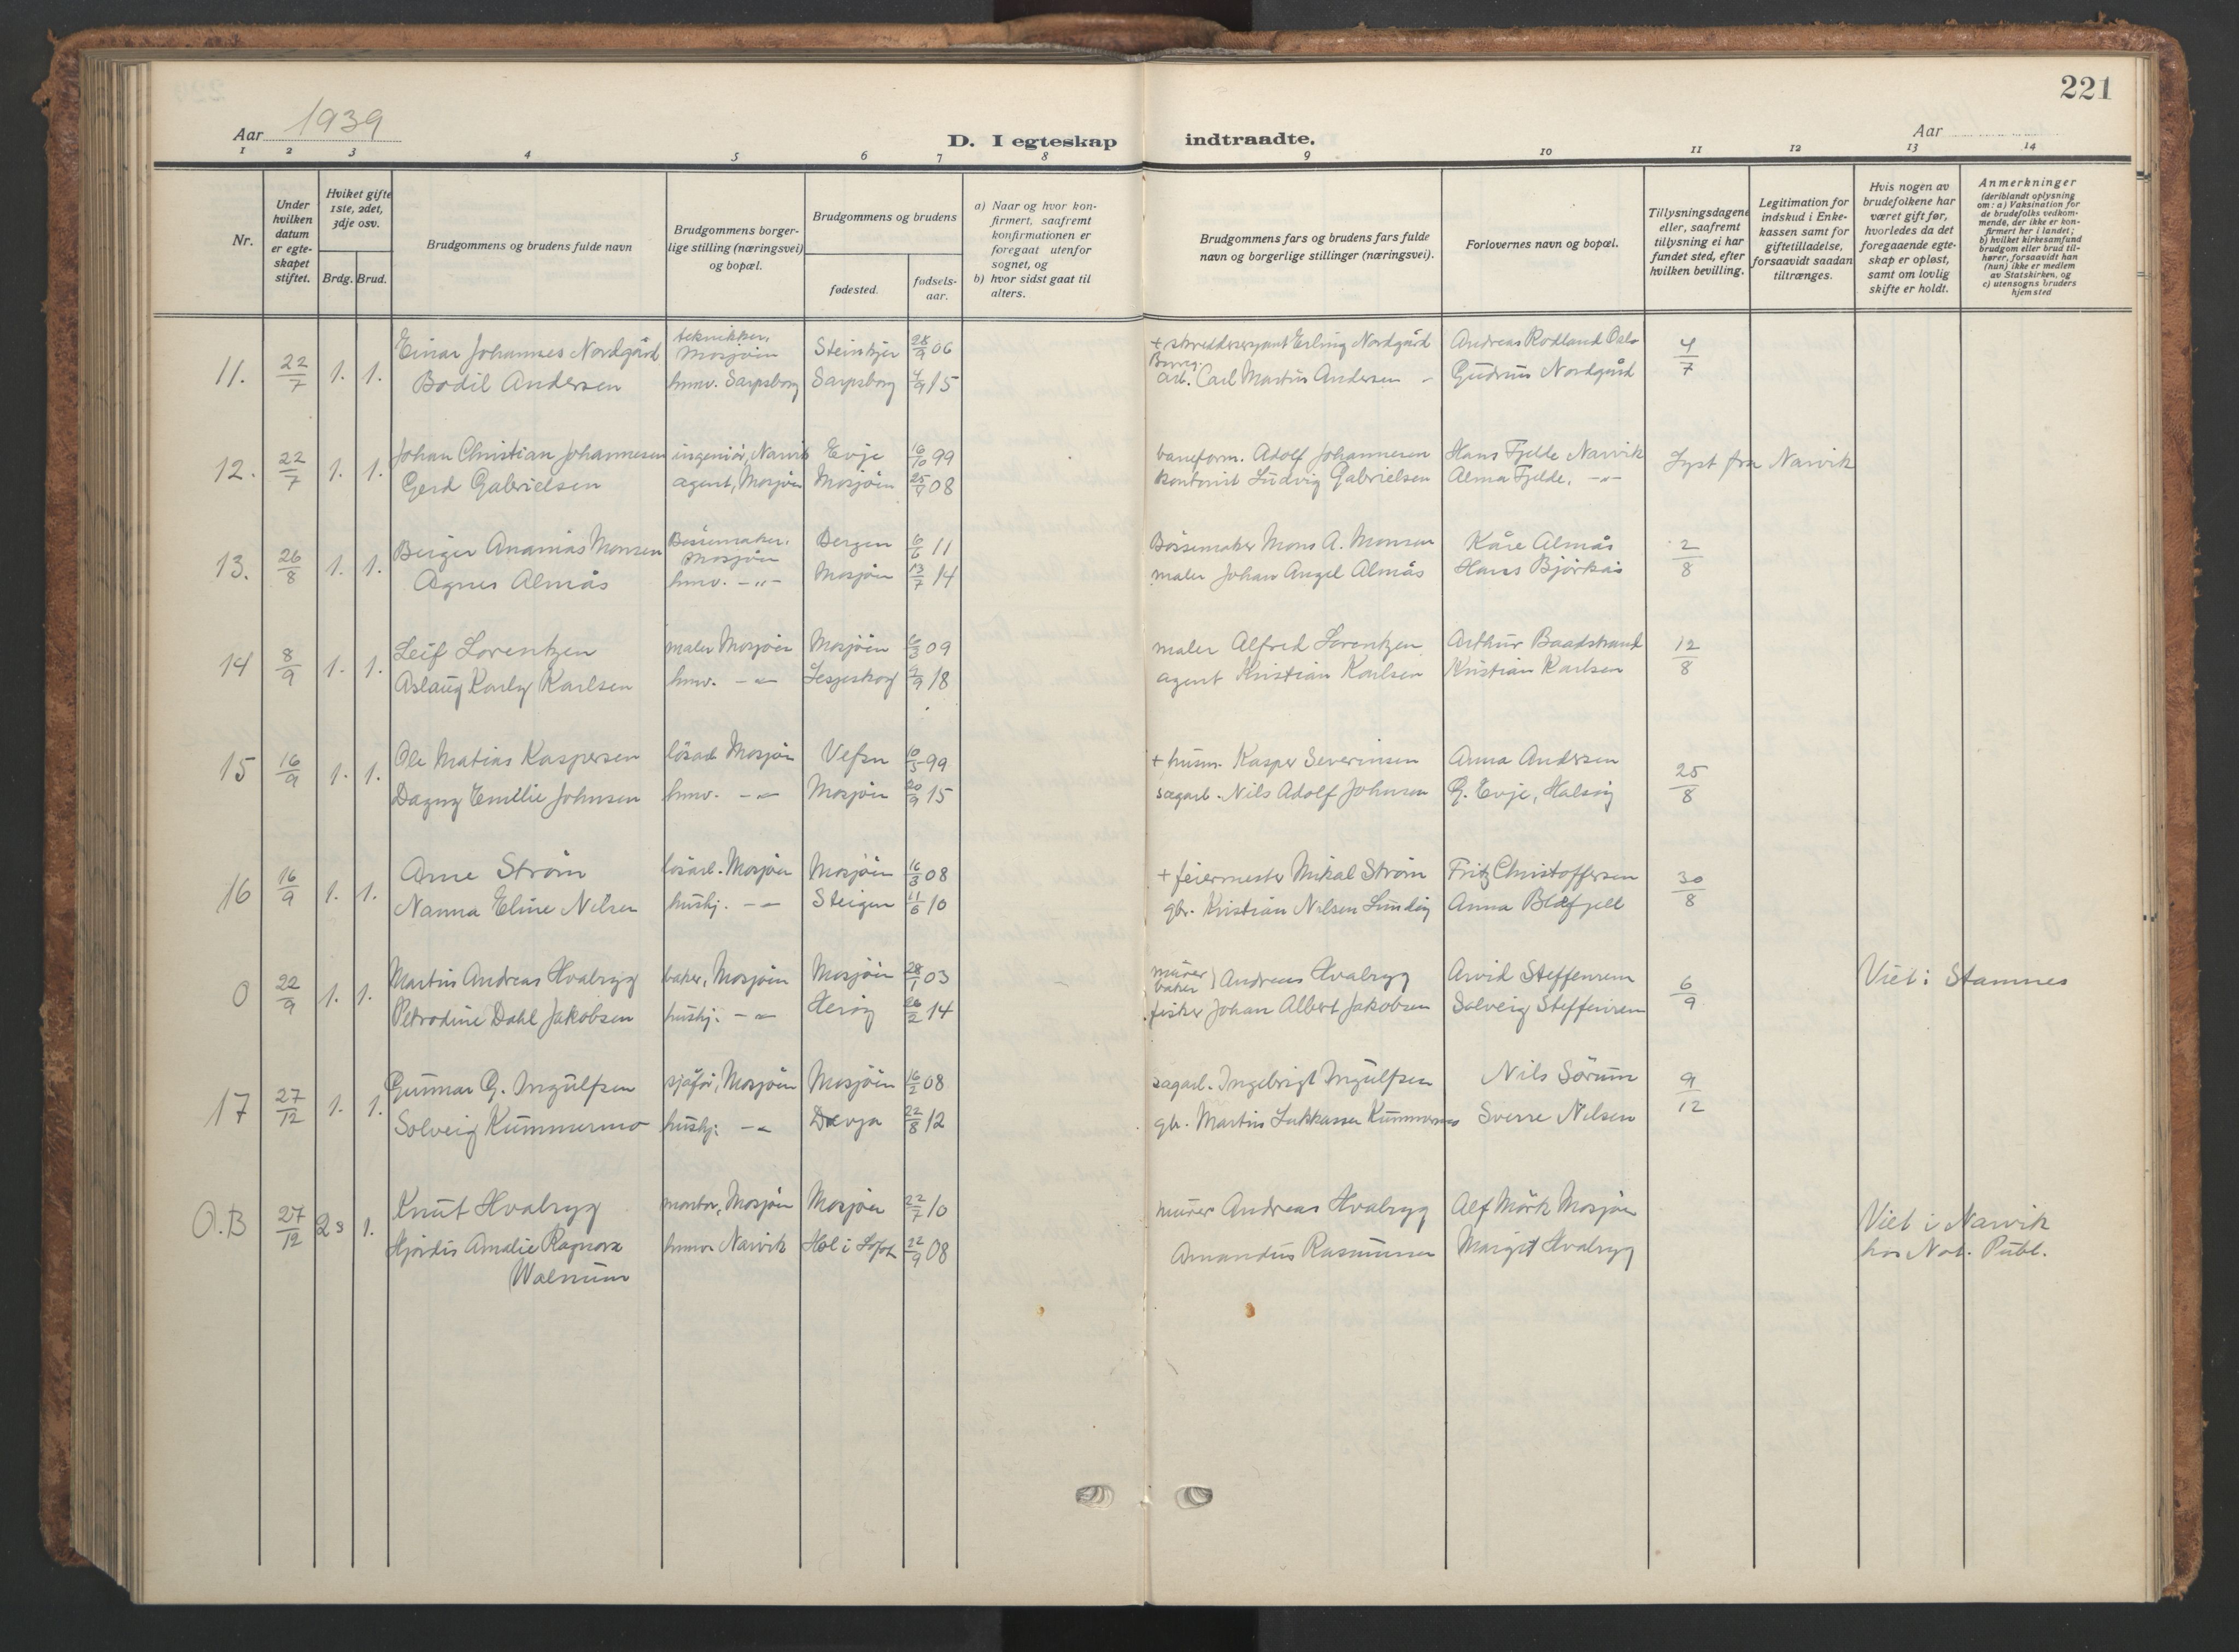 221
Aar 1939
D. I egteskap indtraadte.
Aar
1 2 3 4 5 6 7 8 9 10 11 12 13 14
Nr.
Under hvilken datum er egteskapet stiftet.
Hviket gifte 1ste, 2det, 3dje osv.
Brdg. Brud.
Brudgommens og brudens fulde navn
Brudgommens borgerlige stilling (næringsvei) og bopæl.
Brudgommens og brudens
fødested.
fødselsaar.
a) Naar og hvor konfirmert, saafremt konfirmationen er foregaat utenfor sognet, og
b) hvor sidst gaat til alters.
Brudgommens fars og brudens fars fulde navn og borgerlige stillinger (næringsvei).
Forlovernes navn og bopæl.
Tillysningsdagene eller, saafremt tillysning ei har fundet sted, efter hvilken bevilling.
Legitimation for indskud i Enkekassen samt for giftetilladelse, forsaavidt saadan tiltrænges.
Hvis nogen av brudefolkene har været gift før, hvorledes da det foregaaende egteskap er opløst, samt om lovlig skifte er holdt.
Anmerkninger
(deriblandt oplysning om: a) Vaksination for de brudefolks vedkommende, der ikke er konfirmert her i landet; b) hvilket kirkesamfund brudgom eller brud tilhører, forsaavidt han (hun) ikke er medlem av Statskirken, og c) utensogns bruders hjemsted
11. 22/7 1. 1. Einar Johannes Nordgård tekniker, Mosjöen Steinkjer 28/9 06 + skreddersersjant Erling Nordgård Andreas Rodland Oslo 4/7
Bodil Andersen hmv. Sarpsborg Sarpsborg 4/9 15 arb. Carl Martin Andersen - Gudrun Nordgård
12. 22/7 1. 1. Johan Christian Johannesen ingeniör, Narvik Evje 16/10 99 baneform. Adolf Johannesen Hans Fjelde Narvik Lyst fra Narvik
Gerd Gabrielsen agent, Mosjöen Mosjöen 08 kontorist Ludvig Gabrielsen Alma Fjelde, -"-
13. 26/8 1. 1. Birger Ananias Monsen Börsemaker, Mosjöen Bergen 6/6 11 Börsemaker Mons A. Monsen Kåre Almås 2/8
Agnes Almås hmv. -"- Mosjöen 13/7 14 maler Johan Angel Almås Hans Björkås
14 8/9 1. 1. Leif Lorentzen maler Mosjöen Mosjöen 6/3 09 maler Alfred Lorentzen Arthur Baadstrand 12/8
Aslaug Karly Karlsen hmv. -"- 18 agent Kristian Karlsen Kristian Karlsen
15 16/9 1. 1. Ole Matias Kaspersen lösarb Mosjöen Vefsn 10/5 99 + husm. Kasper Severinsen Anna Andersen 25/8
Dagny Emilie Johnsen hmv. -"- Mosjöen 20/9 15 sagarb. Nils Adolf Johnsen G. Evje, Halsöy
16 16/9 1. 1. Arne Ström lösarb. Mosjöen Mosjöen 16/3 08 + feiermester Mikal Ström Fritz Christoffersen 30/8
Nanna Eline Nilsen hushj. -"- Steigen 11/6 10 gbr. Kristian Nilsen Anna Blåfjell
0 22/9 1. 1. Martin Andreas Hvalryg baker, Mosjöen Mosjöen 28/1 03 murer baker } Andreas Hvalryg Arvid Steffensen 6/9 Viet i Stamnes
Petrodine Dahl Jakobsen hushj. -"- Heröy 26/2 14 fisker Johan Albert Jakobsen Solveig Steffensen
17 27/12 1. 1. Gunnar G. Ingulfsen sjåför, Mosjöen Mosjöen 16/2 08 sagarb. Ingebrigt Ingulfsen Nils Sörum 9/12
Solveig Kummermo hushj. -"- Drevja 22/8 12 gbr. Martin Lukkassen Kummermo Sverre Nilsen
O.B 27/12 2s 1. Knut Hvalryg montör, Mosjöen Mosjöen 22/7 10 murer Andreas Hvalryg Alf Mörk Mosjöen Viet i Narvik
Hjördis Amalie Ragnora hmv. Narvik Hol i Lofot 22/9 08 Amandus Rasmussen Margit Hvalryg hos Not. Publ.
Walnum